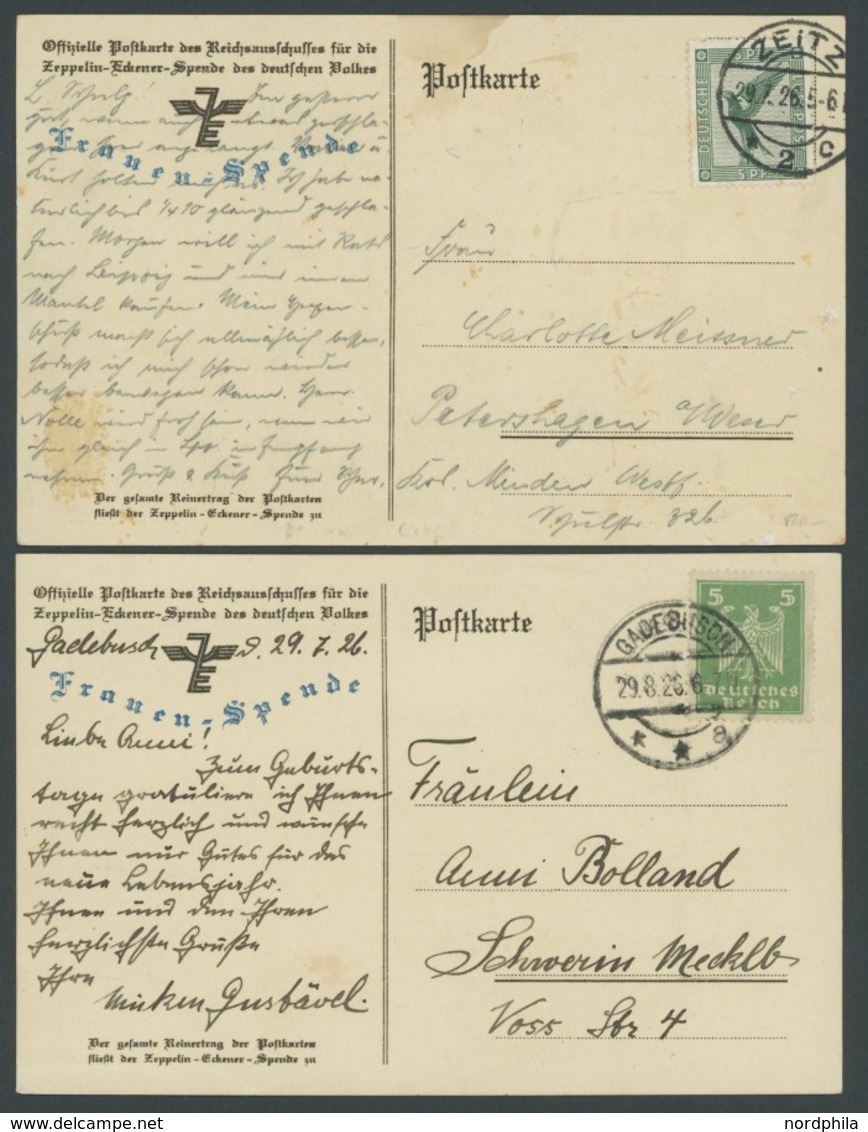 Offizielle Postkarte des Reichsausschusses für die
Zeppelin-Eckener-Spende des deutschen Volkes
Frauen-Spende
natürlich bis 1/4 10 glänzend geschla-
fen. Morgen will ich mit
nach Leipzig und
Mantel kaufen. Mein
macht sich allmählich besser,
sodaß ich mich schon wieder
besser bewegen kann. Herr
Nolle wird froh sein, wenn wir
ihn gleich in Empfang
nehmen. Gruß & Kuß
Der gesamte Reinertrag der Postkarten
fließt der Zeppelin-Eckener-Spende zu
Postkarte
ZEITZ
29.7.26.5-6
* 2 c
DEUTSCHE
5 PF
Frau
Charlotte Meissner
Petershagen a/Weser
Minden Westf.
Schulstr. 32b
Offizielle Postkarte des Reichsausschusses für die
Zeppelin-Eckener-Spende des deutschen Volkes
Gadebusch, d. 29. 7. 26.
Frauen-Spende
Liebe Anni!
Zum Geburts-
tage gratuliere ich Ihnen
recht herzlich und wünsche
Ihnen nur Gutes für das
neue Lebensjahr.
Ihnen und den Ihren
herzlichste Grüße
Ihre
Der gesamte Reinertrag der Postkarten
fließt der Zeppelin-Eckener-Spende zu
Postkarte
GADEBUSCH
29.8.26.6-7
* * a
5 5
Deutsches
Reich
Fräulein
Anni Bolland
Schwerin Mecklb
Voss Str 4
nordphila